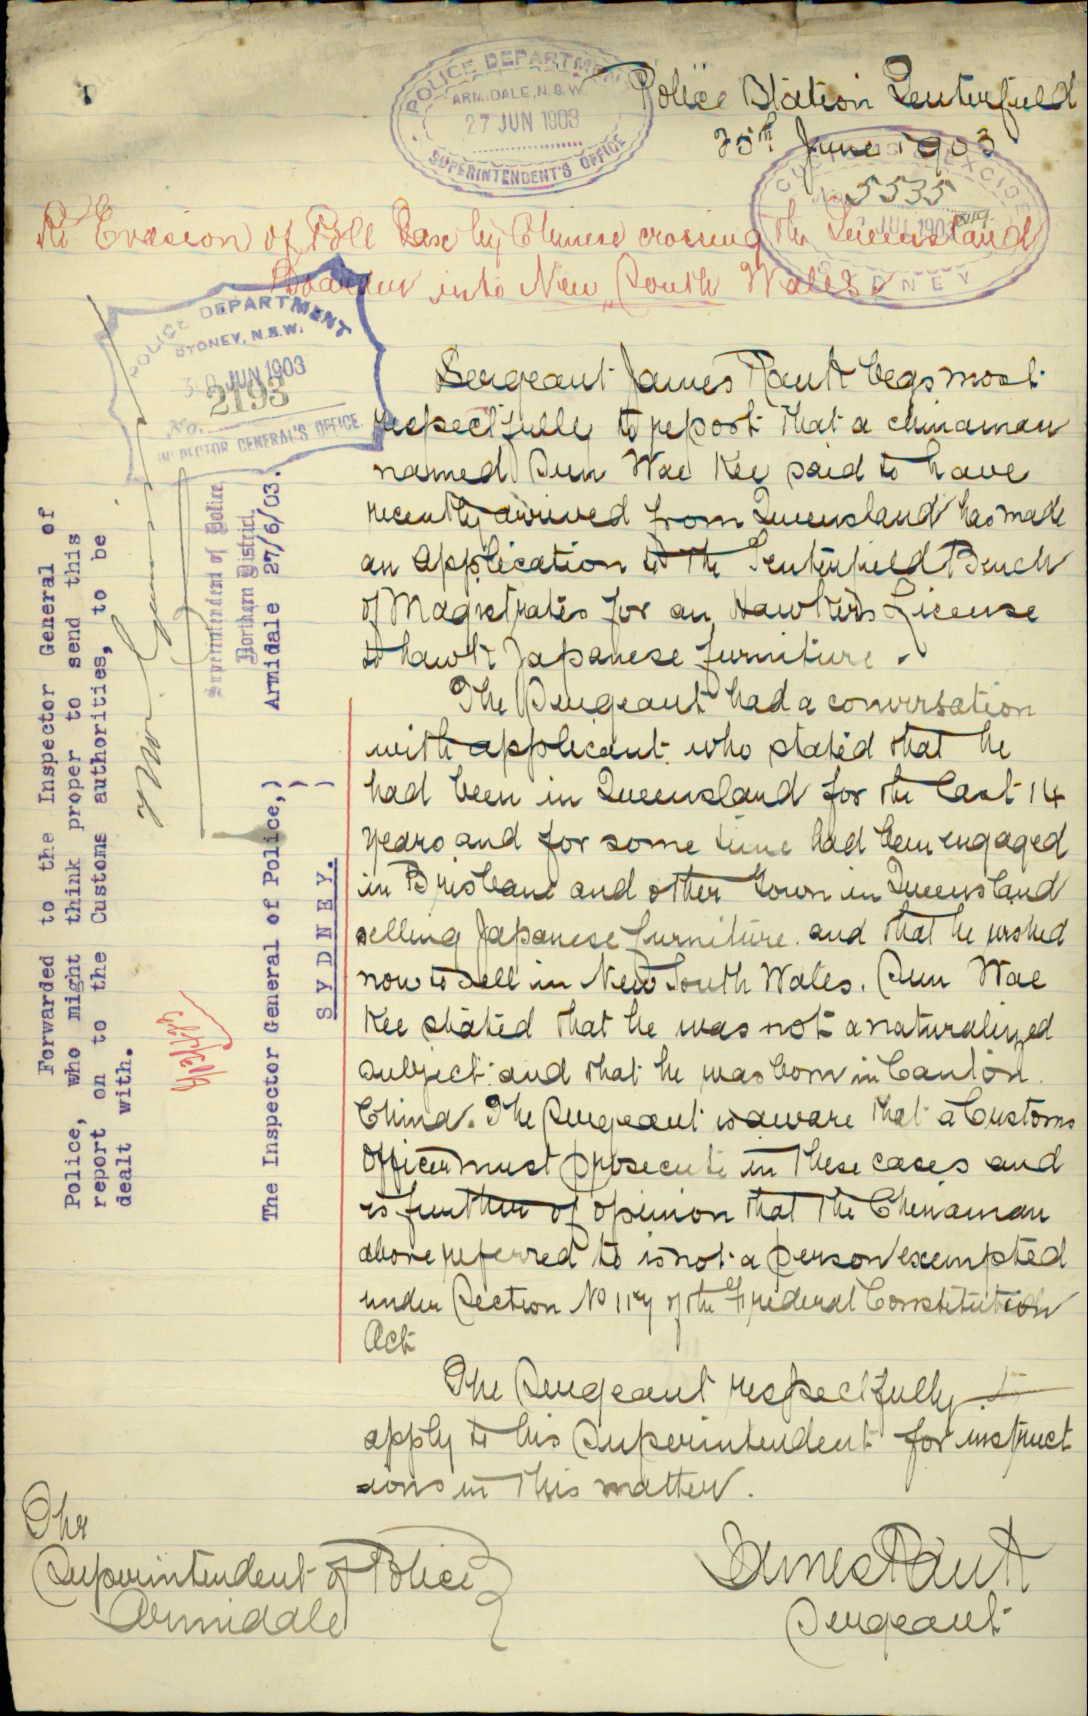 POLICE DEPARTMENT
ARMIDALE, N.S.W.
27 JUN 1903
SUPERINTENDENT'S OFFICE
Police Station Tenterfield
25th June 1903
CUSTOMS EXCISE
5535
JUL 1903
SYDNEY
Re Evasion of Poll Tax by Chinese crossing the Queensland
Boarder into New South Wales
POLICE DEPARTMENT
SYDNEY, N.S.W.
30 JUN 1903
No. 2193
INSPECTOR GENERAL'S OFFICE.
Sergeant James begs most
respectfully to report that a chinaman
named Sun Wae Kee said to have
recently arrived from Queensland has made
an application to the Tenterfield Bench
of Magistrates for an Hawkers License
to hawk Japanese furniture.
The Sergeant had a conversation
with applicant who stated that he
had been in Queensland for the last 14
years and for some time had been engaged
in Brisbane and other Town in Queensland
selling Japanese furniture and that he wished
now to sell in New South Wales. Sun Wae
Kee stated that he was not a naturalized
subject and that he was born in Canton
China. The Sergeant is aware that a Customs
Officer must prosecute in these cases and
is further of opinion that the Chinaman
above referred to is not a person exempted
under Section No 117 of the Federal Constitution
Act
The Sergeant respectfully
apply to his Superintendent for instruct
ions in this matter.
The
Superintendent of Police
Armidale
James
Sergeant
Forwarded to the Inspector General of
Police, who might think proper to send this
report on to the Customs authorities, to be
dealt with.
Superintendent of Police
Northern District
Armidale 27/6/03.
The Inspector General of Police,)
SYDNEY.